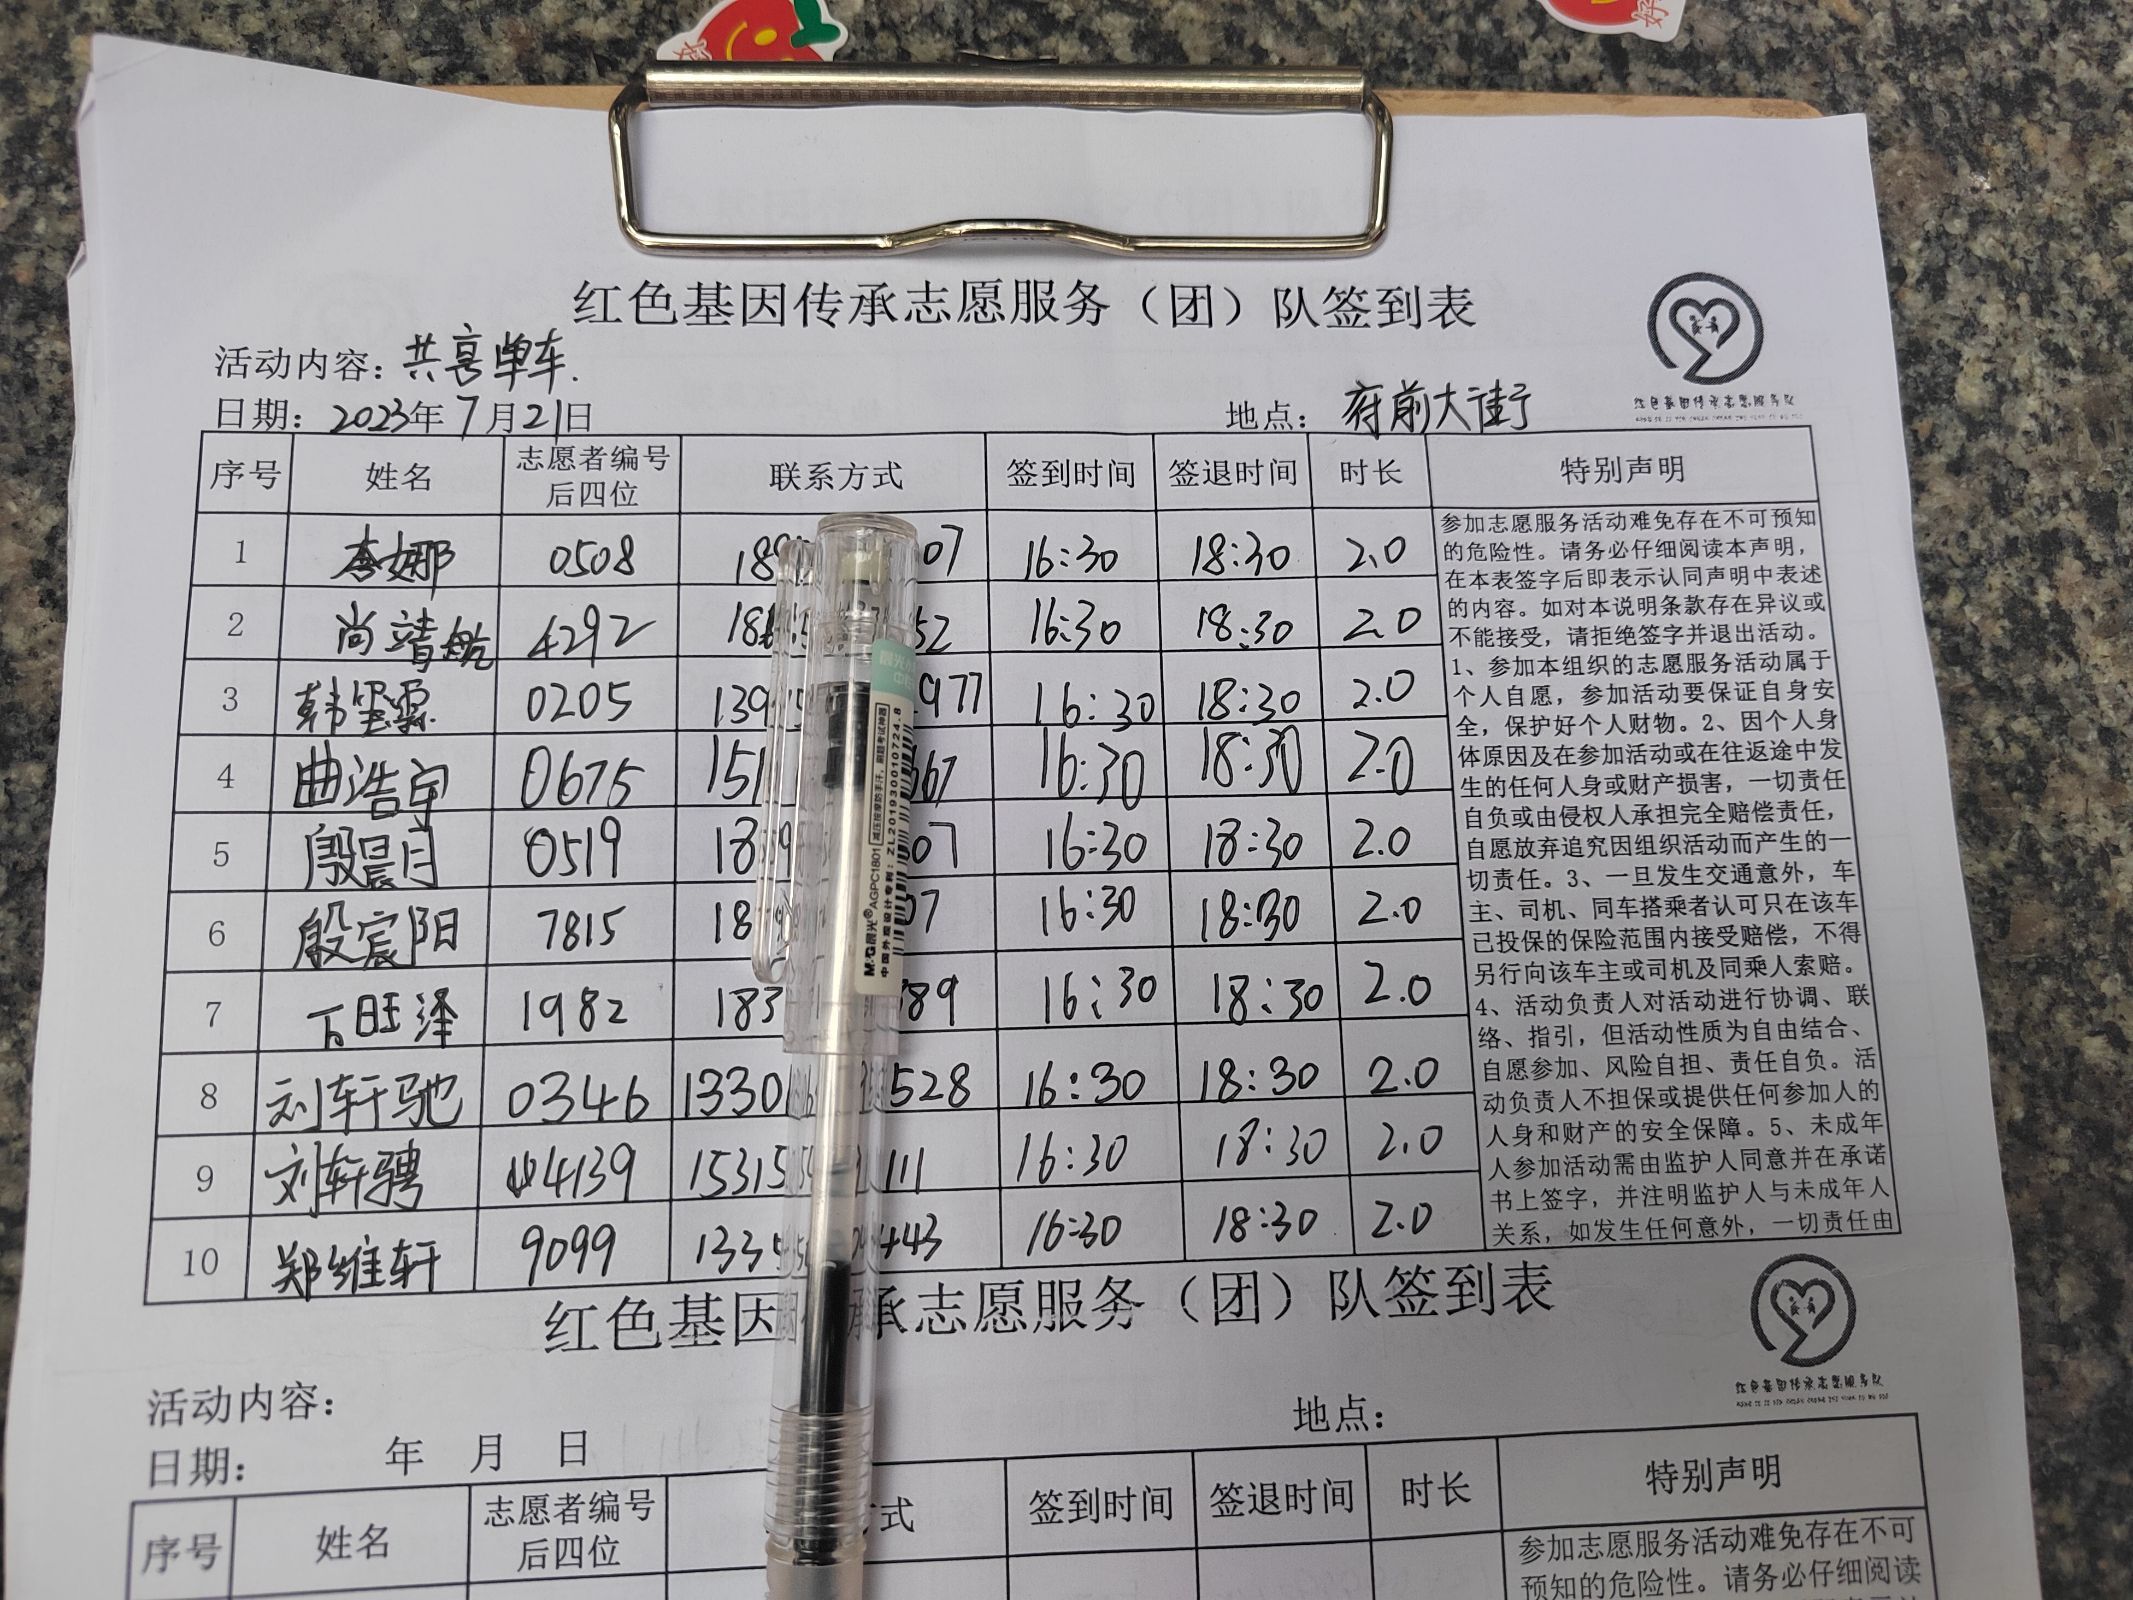 红色基因传承志愿服务（团）队签到表
活动内容：共享单车.
日期：2023年7月21日 地点：府前大街
红色基因传承志愿服务队
序号 姓名 志愿者编号后四位 联系方式 签到时间 签退时间 时长 特别声明
1 李娜 0508 07 16:30 18:30 2.0
2 尚靖航 4292 52 16:30 18:30 2.0
3 韩 0205 977 16:30 18:30 2.0
4 曲浩宇 0675 151 67 16:30 18:30 2.0
5 殷晨月 0519 07 16:30 18:30 2.0
6 殷宸阳 7815 07 16:30 18:30 2.0
7 万旺泽 1982 183 89 16:30 18:30 2.0
8 刘轩驰 0346 1330 528 16:30 18:30 2.0
9 刘轩骋 4139 15315 111 16:30 18:30 2.0
10 郑维轩 9099 133 443 16:30 18:30 2.0
参加志愿服务活动难免存在不可预知
的危险性。请务必仔细阅读本声明，
在本表签字后即表示认同声明中表述
的内容。如对本说明条款存在异议或
不能接受，请拒绝签字并退出活动。
1、参加本组织的志愿服务活动属于
个人自愿，参加活动要保证自身安
全，保护好个人财物。2、因个人身
体原因及在参加活动或在往返途中发
生的任何人身或财产损害，一切责任
自负或由侵权人承担完全赔偿责任，
自愿放弃追究因组织活动而产生的一
切责任。3、一旦发生交通意外，车
主、司机、同车搭乘者认可只在该车
已投保的保险范围内接受赔偿，不得
另行向该车主或司机及同乘人索赔。
4、活动负责人对活动进行协调、联
络、指引，但活动性质为自由结合、
自愿参加、风险自担、责任自负。活
动负责人不担保或提供任何参加人的
人身和财产的安全保障。5、未成年
人参加活动需由监护人同意并在承诺
书上签字，并注明监护人与未成年人
关系，如发生任何意外，一切责任由
M&G晨光®AGPC1801 减压按摩防手汗，刷题考试神器
中国外观设计专利：ZL201930010724.8
红色基因 承志愿服务（团）队签到表
活动内容： 地点：
日期： 年 月 日
红色基因传承志愿服务队
序号 姓名 志愿者编号后四位 方式 签到时间 签退时间 时长 特别声明
参加志愿服务活动难免存在不可
预知的危险性。请务必仔细阅读